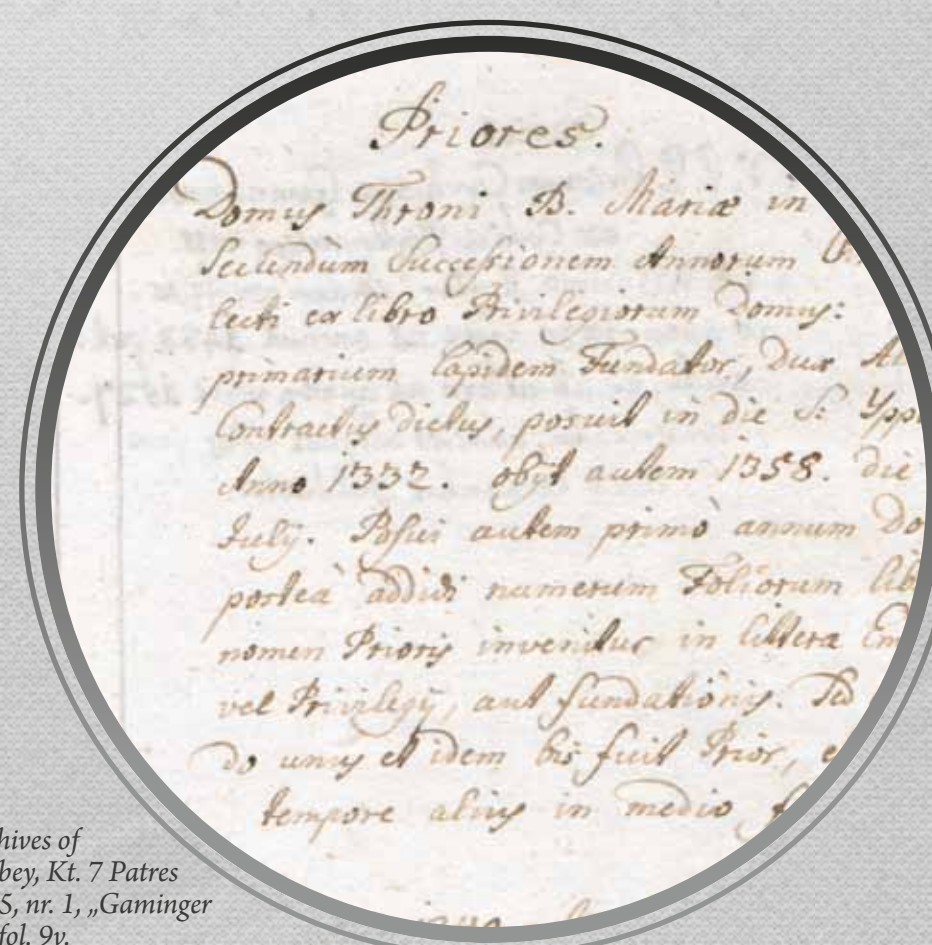 Priores.
Domus Throni B. Mariæ in
Secundùm Successionem Annorum
lecti ex libro Privilegiorum Domus:
primarium Lapidem Fundator, Dux Al
Contractus dictus, posuit in die S: Yppo
Anno 1332. obijt autem 1358. die
Julij. Posui autem primò annum Do
posteà addidi numerum Foliorum lib
nomen Prioris invenitur in littera Em
vel Privilegij, aut fundationis. Sed
do unus et idem bis fuit Prior, e
tempore alius in medio f
hives of
bey, Kt. 7 Patres
5, nr. 1, „Gaminger
fol. 9v.